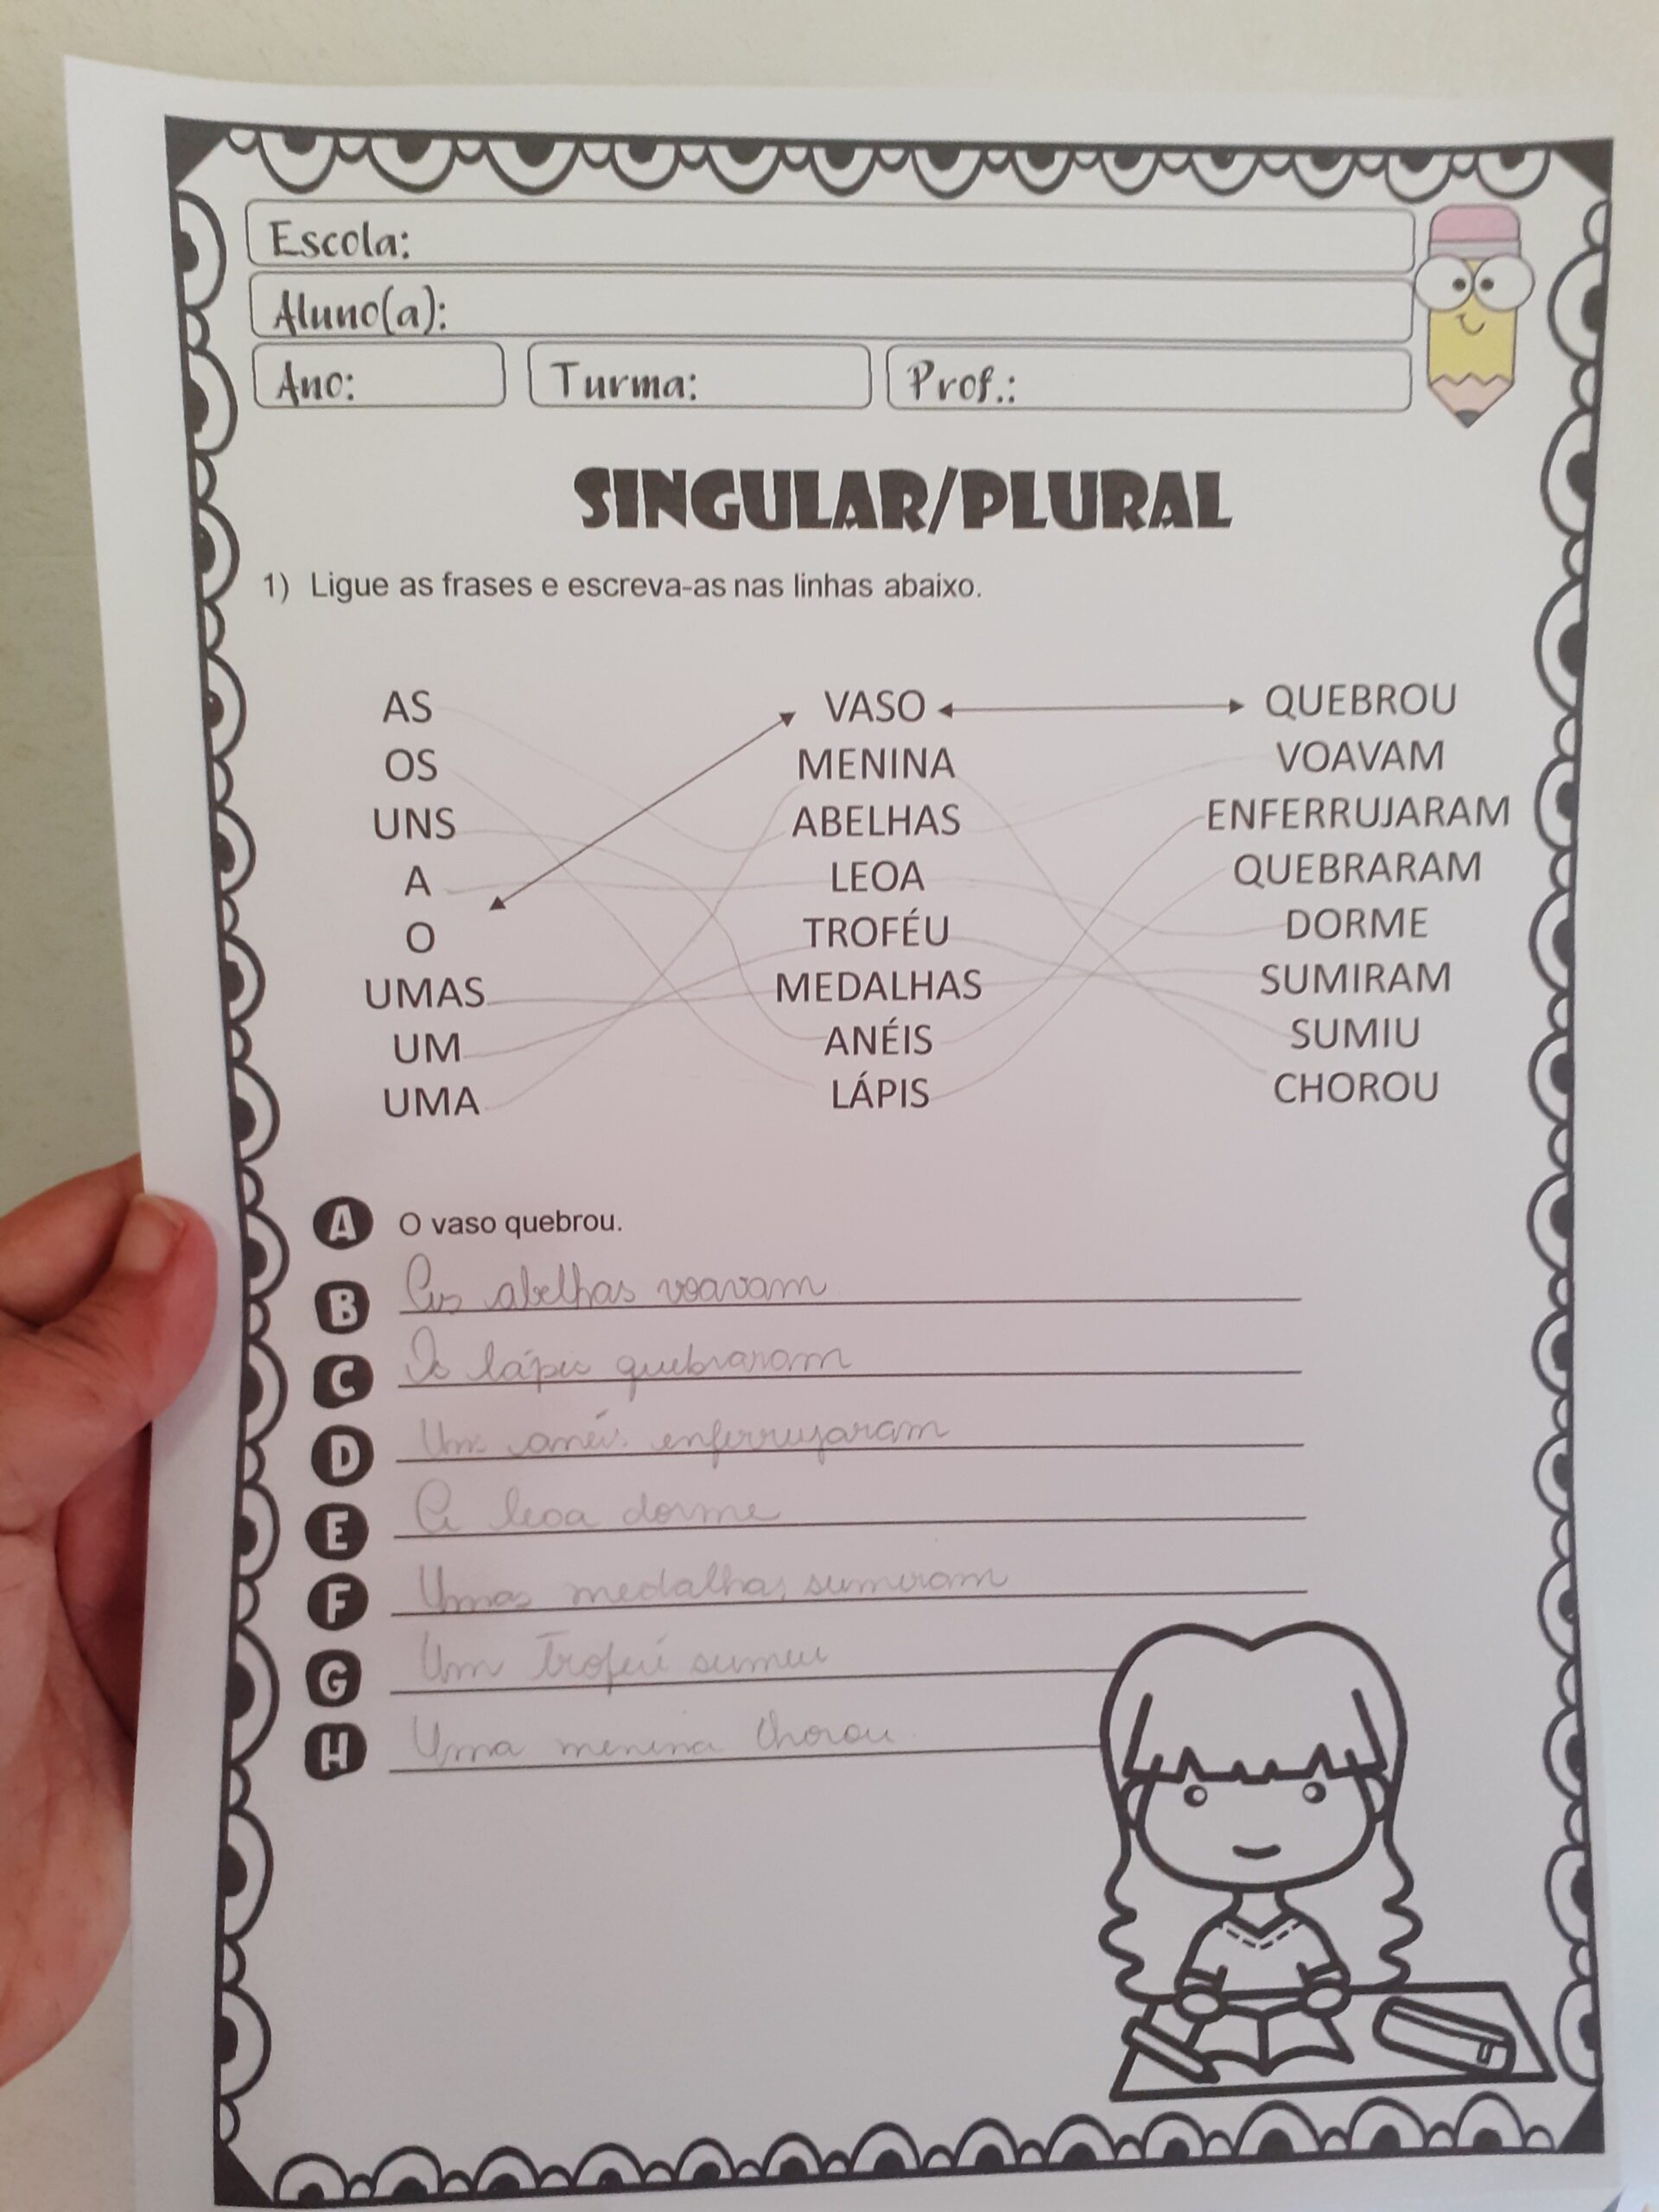 Escola:
Aluno(a):
Ano: Turma: Prof.:
SINGULAR/PLURAL
1) Ligue as frases e escreva-as nas linhas abaixo.
AS VASO QUEBROU
OS MENINA VOAVAM
UNS ABELHAS ENFERRUJARAM
A LEOA QUEBRARAM
O TROFÉU DORME
UMAS MEDALHAS SUMIRAM
UM ANÉIS SUMIU
UMA LÁPIS CHOROU
A O vaso quebrou.
B As abelhas voavam
C Os lápis quebraram
D Uns anéis enferrujaram
E A leoa dorme
F Umas medalhas sumiram
G Um Troféu sumiu
H Uma menina chorou